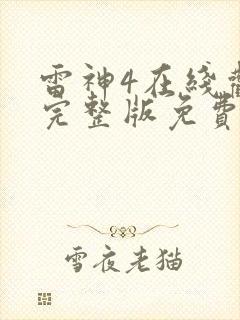 雷神4在线
完整版免費
雪夜老猫